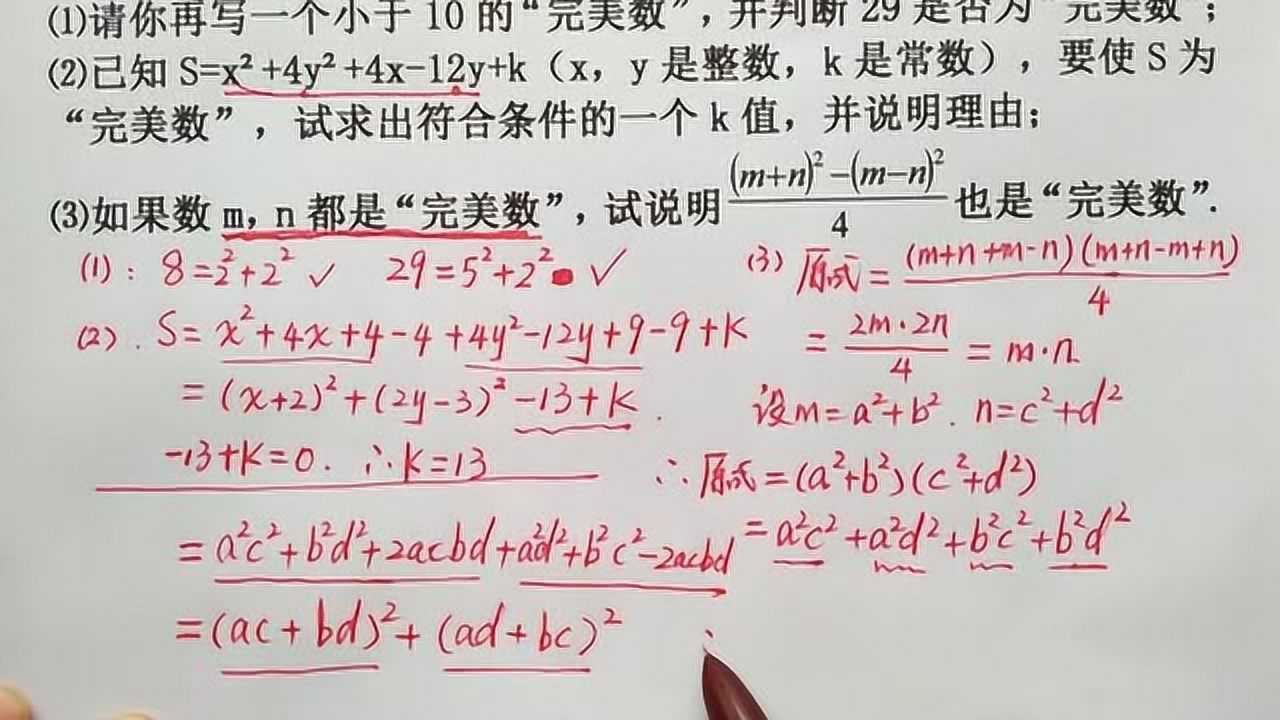 (1)请你再写一个小于 10 的“完美数”，并判断 29 是否为“完美数”；
(2)已知 S=x²+4y²+4x-12y+k（x，y 是整数，k 是常数），要使 S 为
“完美数”，试求出符合条件的一个 k 值，并说明理由；
(3)如果数 m，n 都是“完美数”，试说明 ((m+n)²-(m-n)²)/4 也是“完美数”.
(1)：8=2²+2² ✓ 29=5²+2² ✓
(2). S=x²+4x+4-4+4y²-12y+9-9+k
=(x+2)²+(2y-3)²-13+k.
-13+k=0. ∴k=13
(3) 原式=(m+n+m-n)(m+n-m+n)/4
=2m·2n/4=m·n
设m=a²+b². n=c²+d²
∴原式=(a²+b²)(c²+d²)
=a²c²+a²d²+b²c²+b²d²
=a²c²+b²d²+2acbd+a²d²+b²c²-2acbd
=(ac+bd)²+(ad+bc)²